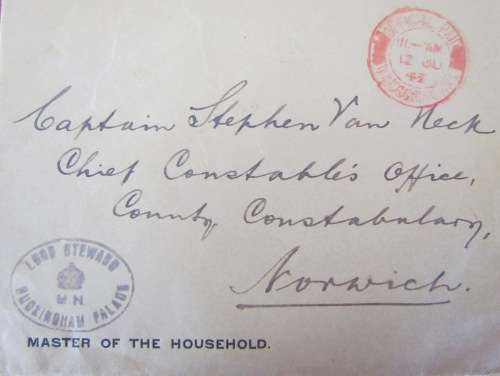 OFFICIAL PAID
11-AM
12 JU
42
BUCKINGHAM PALACE
Captain Stephen Van Neck
Chief Constable's Office,
County Constabulary,
Norwich.
LORD STEWARD
BUCKINGHAM PALACE
MASTER OF THE HOUSEHOLD.